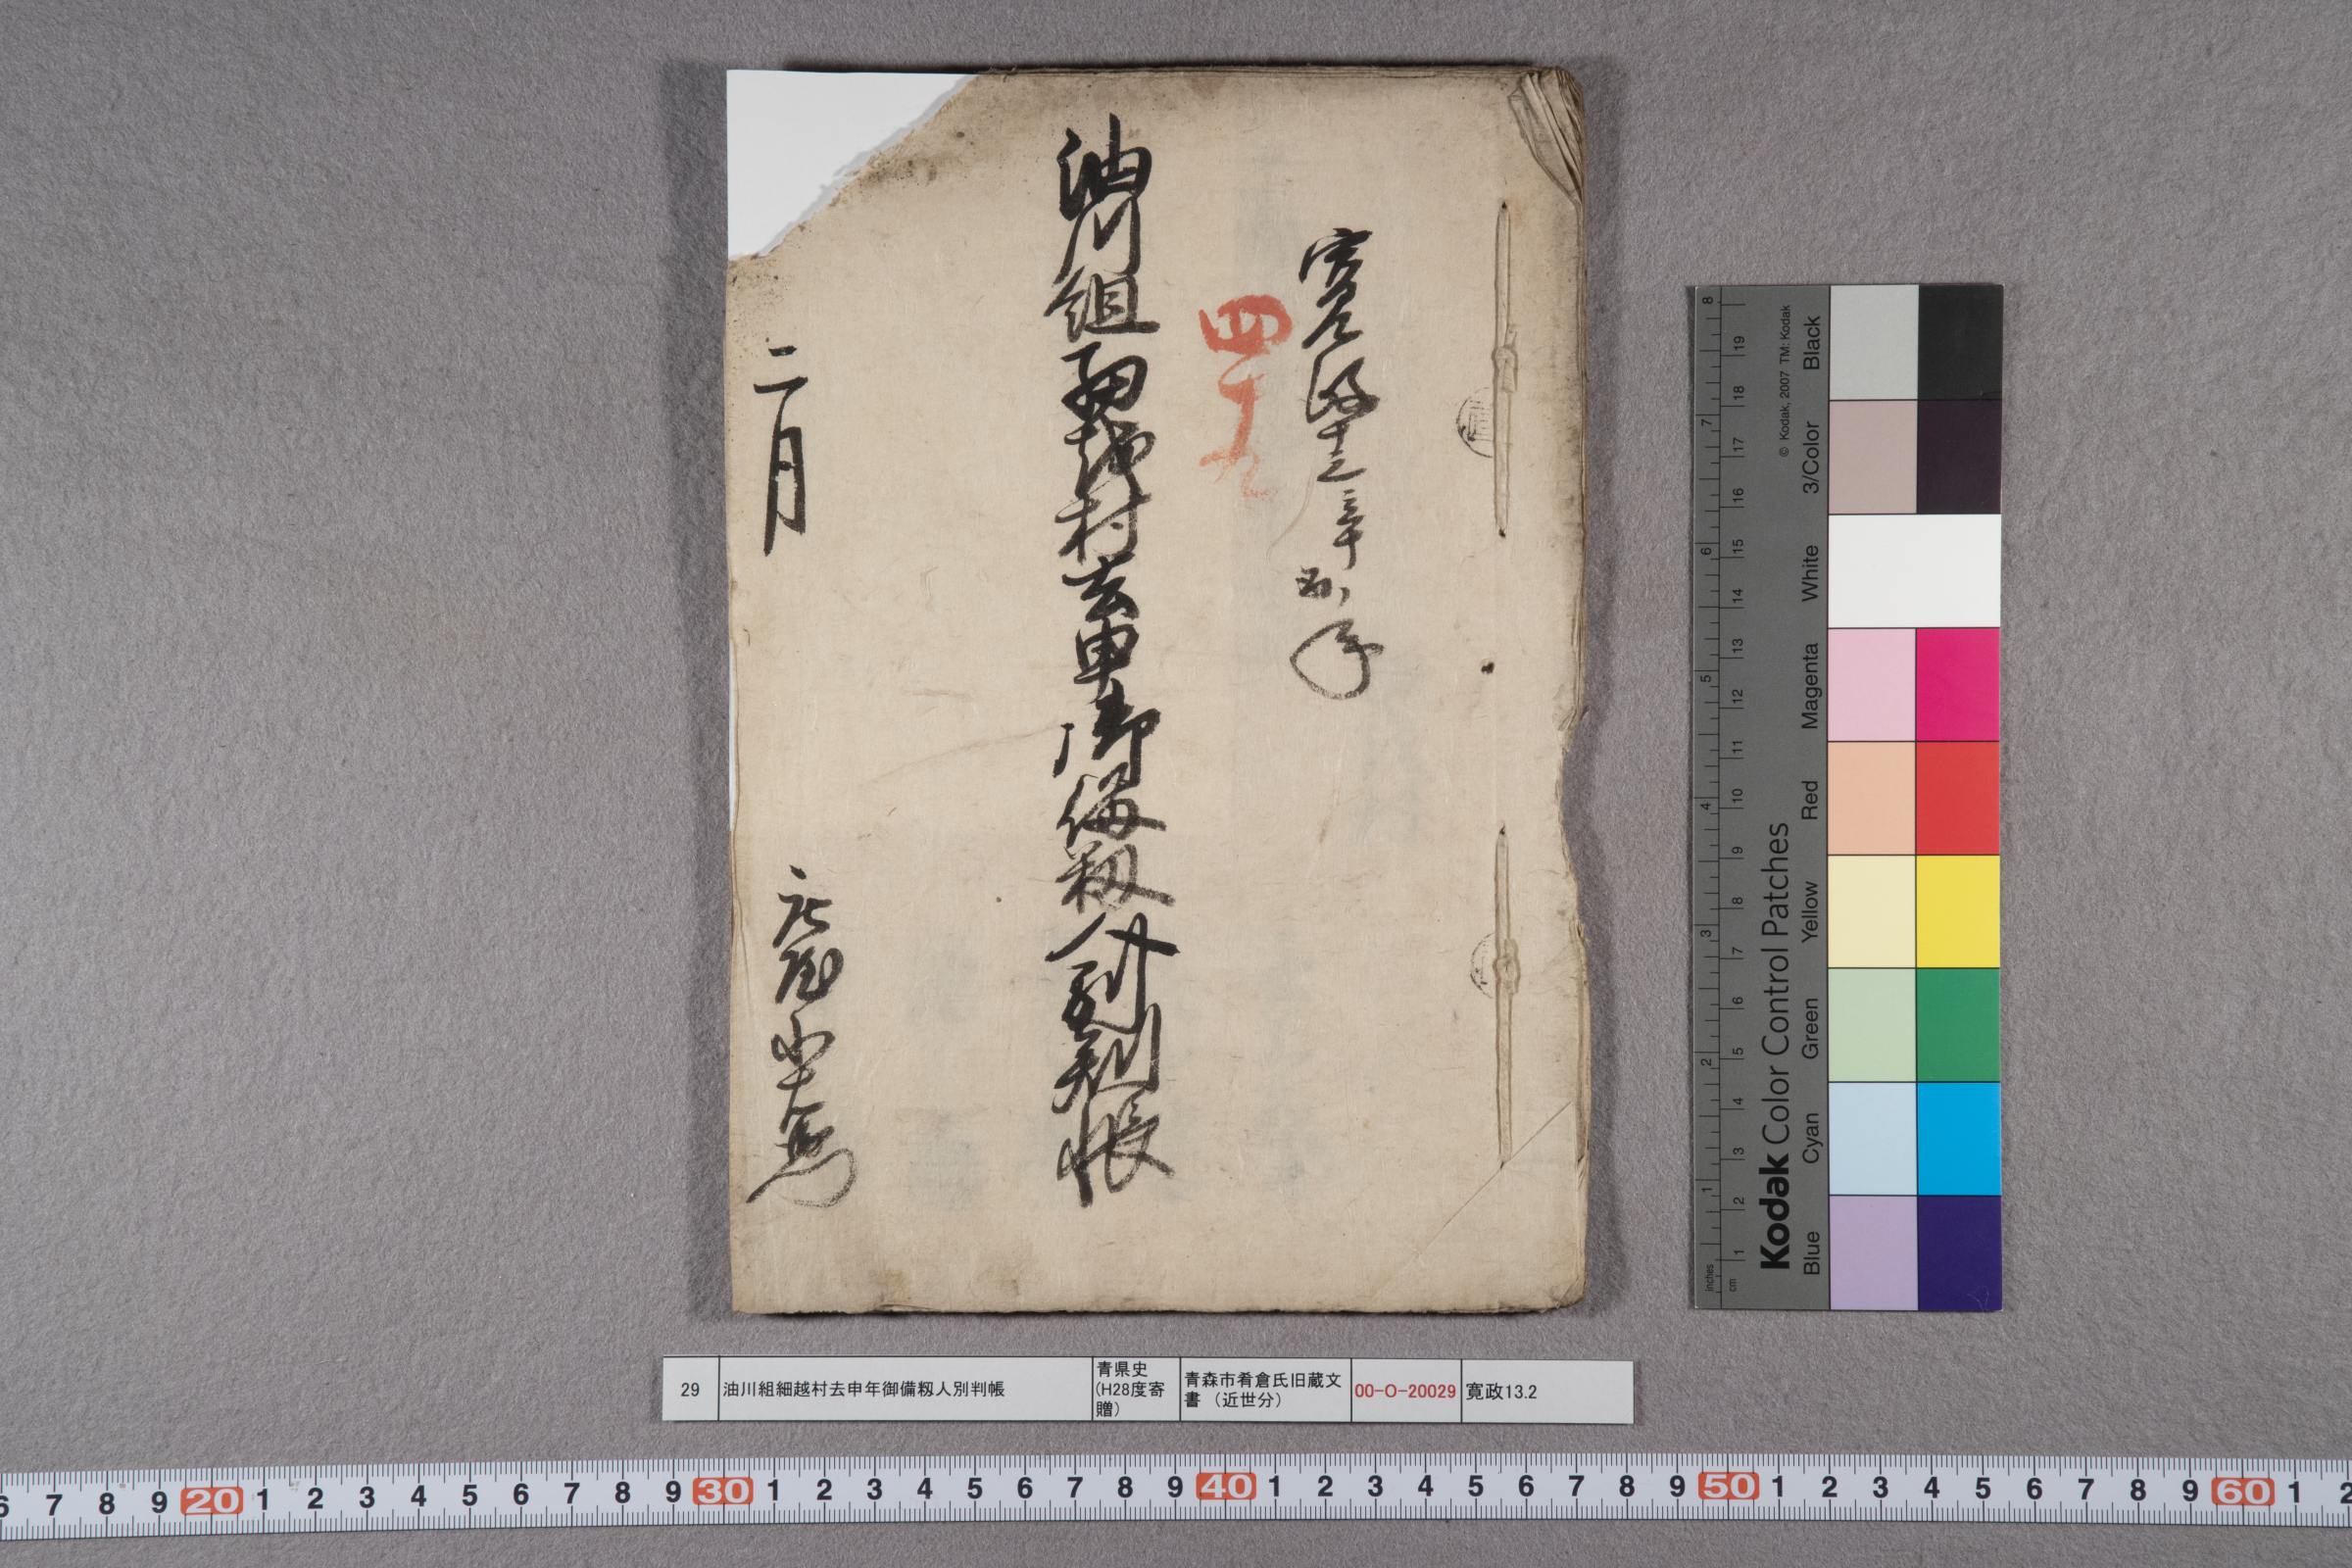 寛政十三辛酉ノ年
四十九
油川組細越村去申御備籾人別判帳
二月
庄屋
29 油川組細越村去申年御備籾人別判帳 青県史(H28度寄贈) 青森市肴倉氏旧蔵文書（近世分） 00-O-20029 寛政13.2
Kodak Color Control Patches
© Kodak, 2007 TM: Kodak
Blue Cyan Green Yellow Red Magenta White 3/Color Black
inches 1 2 3 4 5 6 7 8
cm 1 2 3 4 5 6 7 8 9 10 11 12 13 14 15 16 17 18 19
6 7 8 9 20 1 2 3 4 5 6 7 8 9 30 1 2 3 4 5 6 7 8 9 40 1 2 3 4 5 6 7 8 9 50 1 2 3 4 5 6 7 8 9 60 1 2